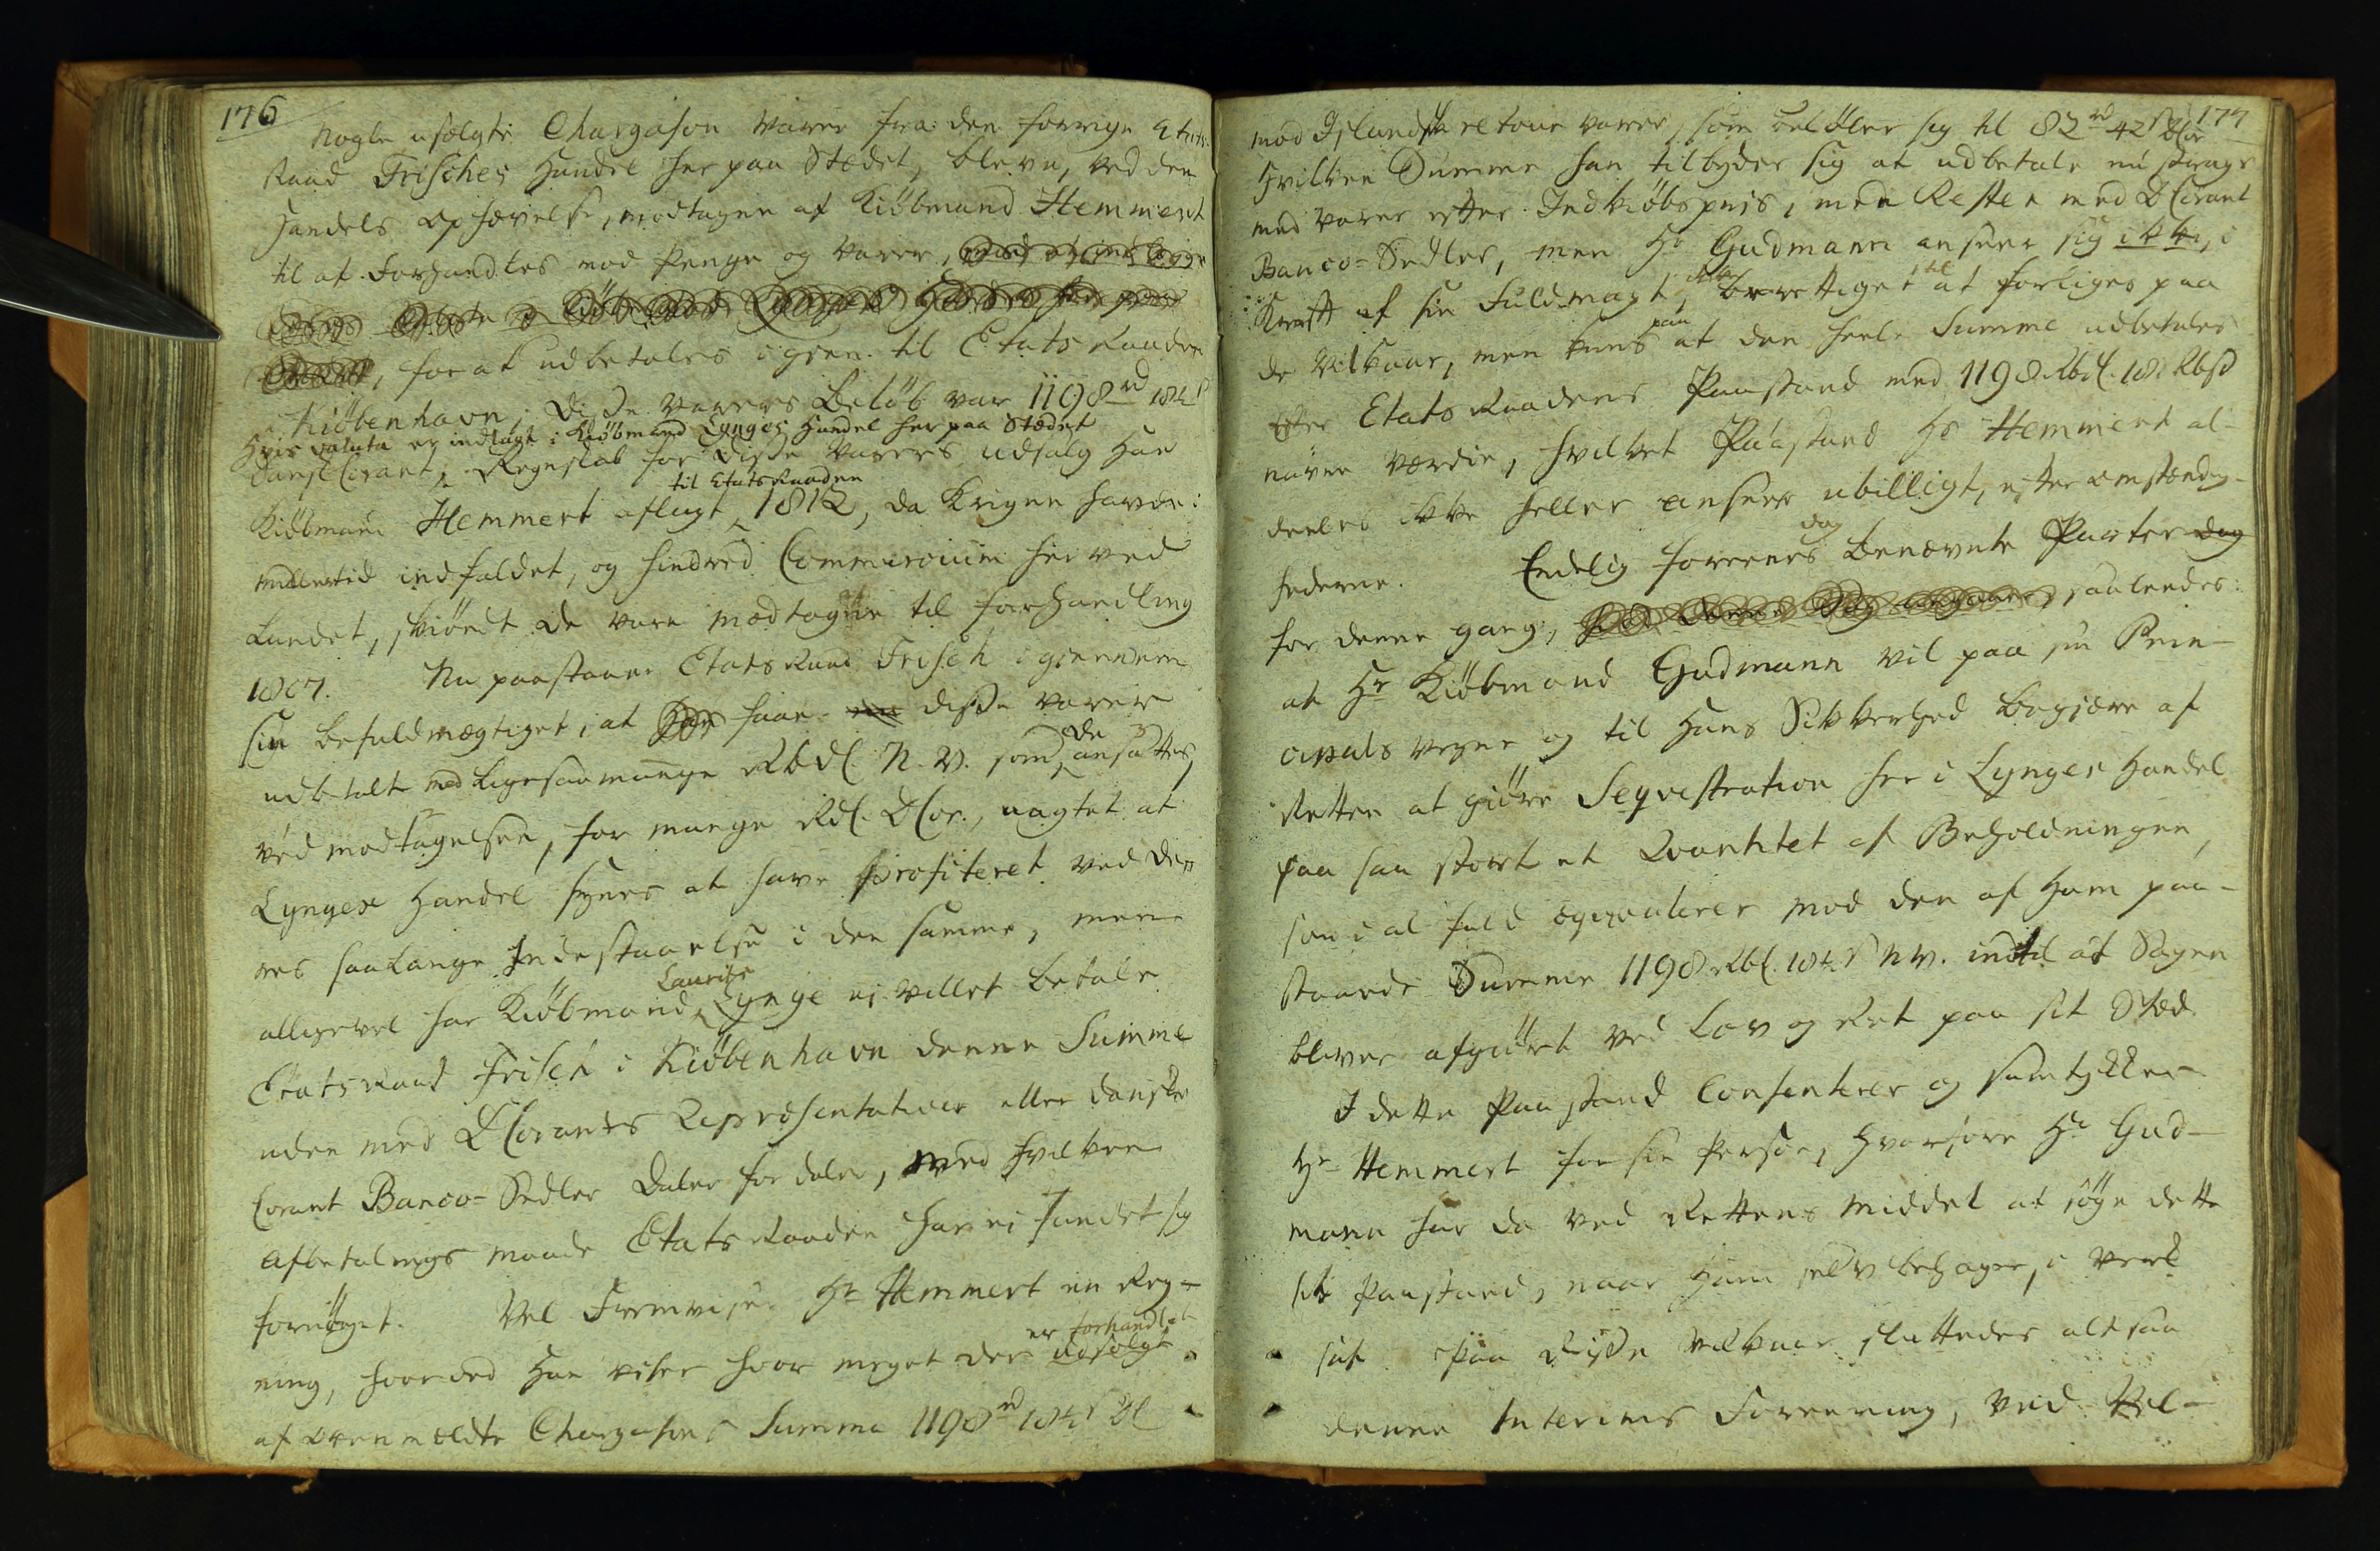 176
Nogle usolgte Chargasön Varer fra den forrige Etats-
raad Frisches Handel her paa Stædet, bleve, ved den
Handels Ophævelse, modtagne af Kiöbmand Hemmert
til at forhandles mod Penge og Varer,
for at udbetales igien til Etats Raaden
i Kiöbenhavn; Disse Varers Belöb var 1198 rd 18 s
Hvis valuta er indtagt i Kiöbmand Lynges Handel her paa Stædet
dansk Corant, Regnskab for disse Varers udsalg har
til Etats Raaden
Kiöbmand Hemmert aflagt 1812, da Krigen havde i
midlertid indfaldet, og hindred Commercium her ved
Landet, skiöndt de vare modtagne til forhandling
1807. Nu paastaaer Etats Raad Frisch igiennem
sin befuldmægtiget, at faae disse Varer
de
udbetalt med ligesaamange Rbdl. N. V. som ansattes,
ved modtagelsen, for mange Rdl. DCor., uagtet at
Lynges Handel synes at have profiteret ved de-
res saalange Indestaaelse i den samme, men
Lauritz
alligevel har Kiöbmand Lynge ei villet betale
Etatsraad Frisch i Kiöbenhavn denne Summe
uden med DCorants Repræsentativer eller danske
Corant Banco-Sedler Daler for daler, med hvilken
Afbetalings maade Etats Raaden har ei fundet sig
fornöyet. Vel Fremviser Hr Hemmert en Reg-
er forhandlet
ning, hvorved han viser hvor meget der udsolgt
af ovenmeldte Chargasöns Summa 1198 rd 18 s
177
mod Islandske retour varer, som belöber sig til 82 rd 42 s DCor
hvilken Summe han tilbyder sig at udbetale nu strax
med varer efter Indkiöbspris, men Resten med DCorant
Banco-Sedler, men Hr Gudmann anseer sig ikke, i
Kraft af sin Fuldmagt, berettiget til at forliges paa
paa
de Vilkaar, men kuns at den heele Summe udbetales
efter Etats Raadens Paastand med 1198 Rbdl. 18 Rbs
navne værdie, hvilket Paastand Hr Hemmert al-
deeles ikke heller anseer ubilligt, efter omstændig-
dog
hederne. Endelig foreenes benævnte Parter dog
for denne gang, saaledes:
at Hr Kiöbmand Gudmann vil paa sin Prin-
cipals vegne og til hans Sikkerhed begjære af
Retten at giöre Seqvestration her i Lynges Handel
paa saa stort et Qvantitet af Beholdningen,
som i al fald æqvivalerer mod den af ham paa-
staaede Summe 1198 Rbdl. 18 s N.V. indtil at Sagen
bliver afgiört ved Lov og Ret paa sit Stæd.
I dette Paastand Consenterer og samtykker
Hr Hemmert for sin Person, hvorfore Hr Gud-
mann har da ved Rettens Middel at söge dette
sit Paastand, naar ham selv behager, i værk
sat. Paa disse Vilkaar sluttedes altsaa
denne Interims Foreening, ved Vel-